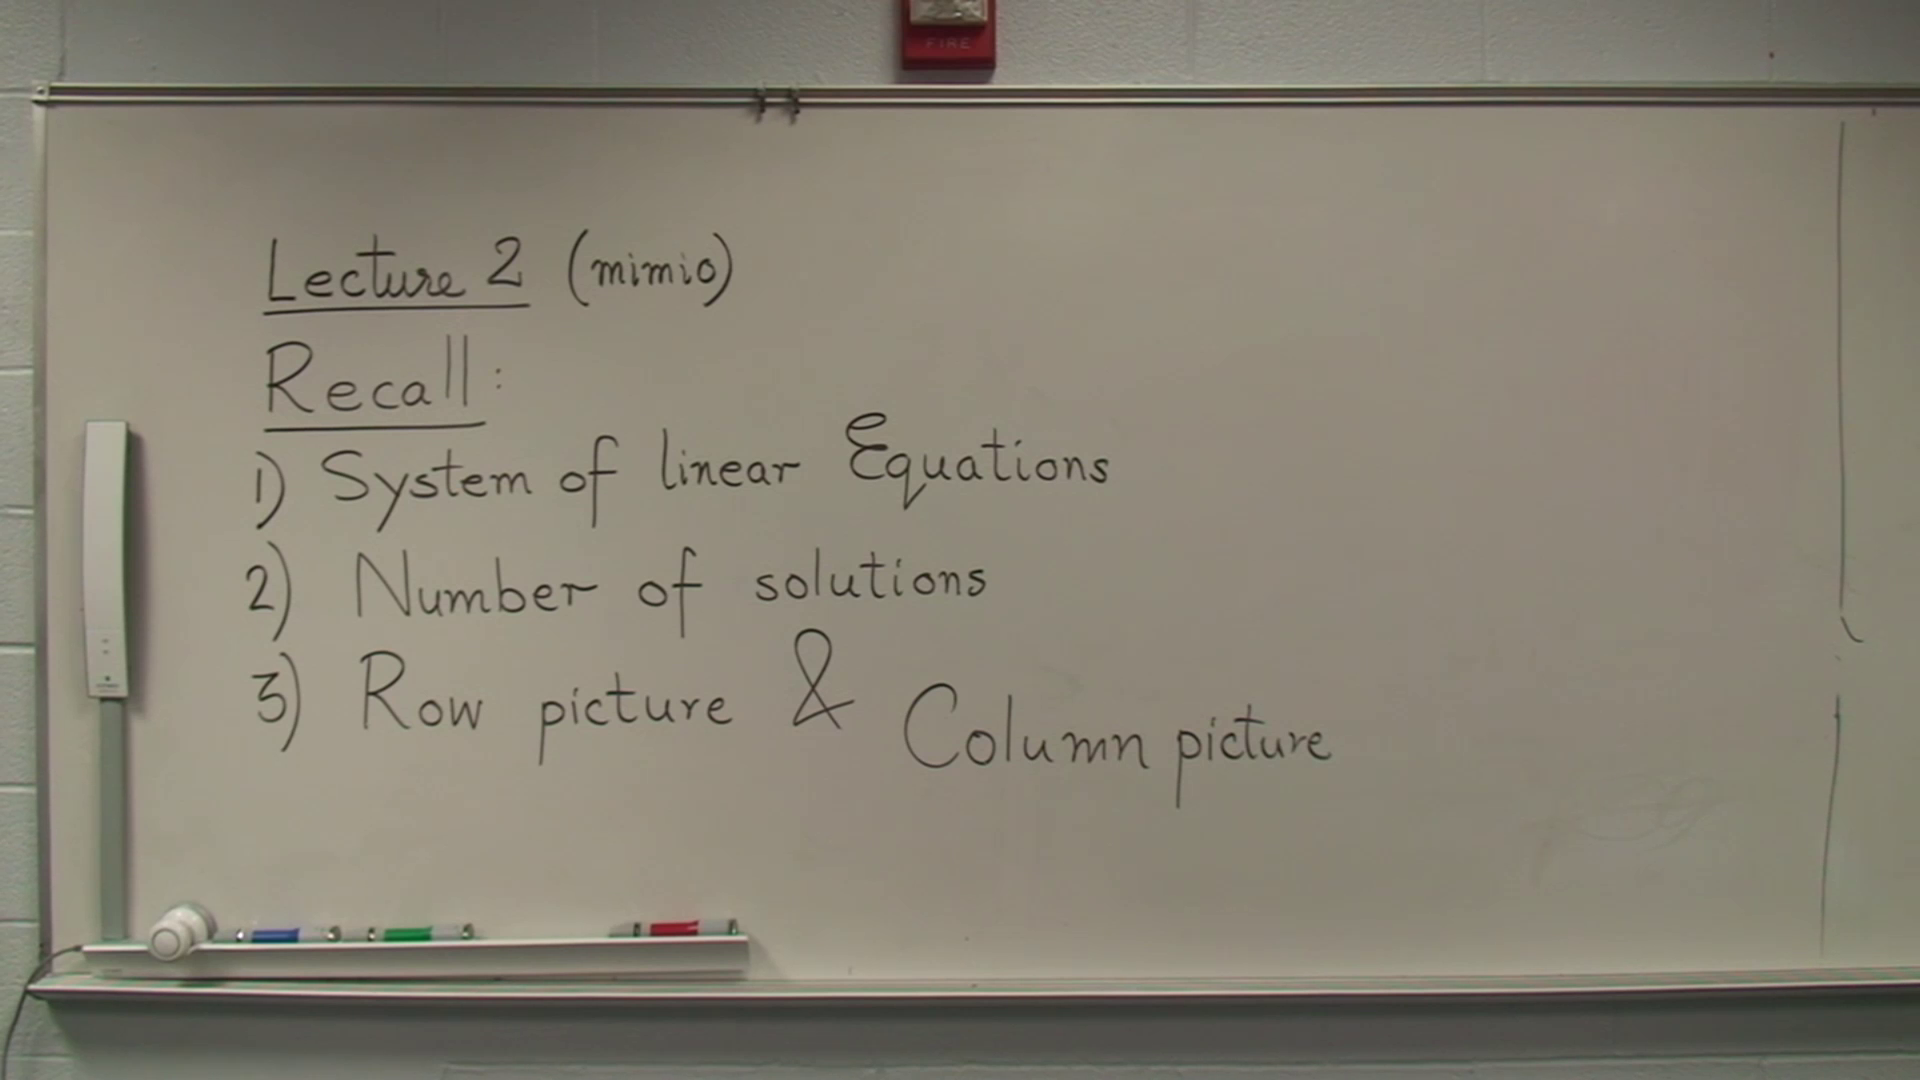 FIRE
Lecture 2 (mimio)
Recall:
1) System of linear Equations
2) Number of solutions
3) Row picture & Column picture